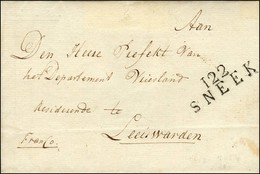 Aan
Den Heere Prefekt Van
het Departement Vriesland
122
SNEEK
Residerende te
Leeuwarden
Franco